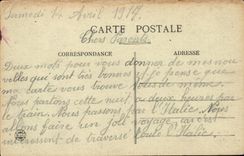 Samedi 14 Avril 1917.
CARTE POSTALE
Chers Parents
CORRESPONDANCE
ADRESSE
Deux mots pour vous donner de mes nou
velles qui sont très bonnes et je pense que
ma carte vous trouve de même
Nous partons cette nuit a deux heures par
le train. Nous passons par l'Italie. Nous
allons faire un joli voyage, car c'est
interessent de traverse toute l'Italie.